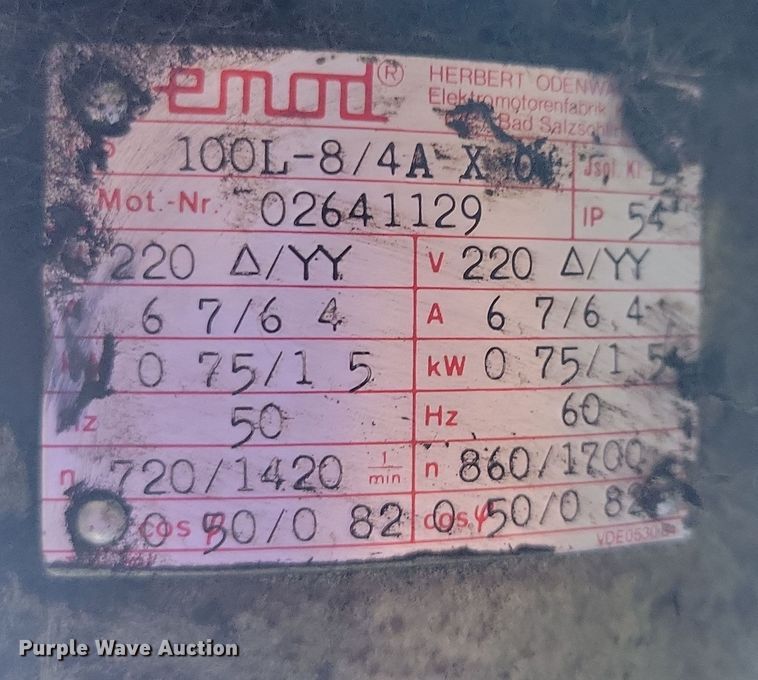 emod®
HERBERT
Elektromotorenfabrik
Bad
100L-8/4A X
Jsol. Kl
Mot.-Nr. 02641129
IP 54
220 Δ/YY
V 220 Δ/YY
6 7/6 4
A 6,7/6,4
0 75/1 5
kW 0 75/1 5
Hz 50
Hz 60
n 720/1420 1/min
n 860/1700
cos φ 0 50/0 82
cos φ 0 50/0 82
Purple Wave Auction